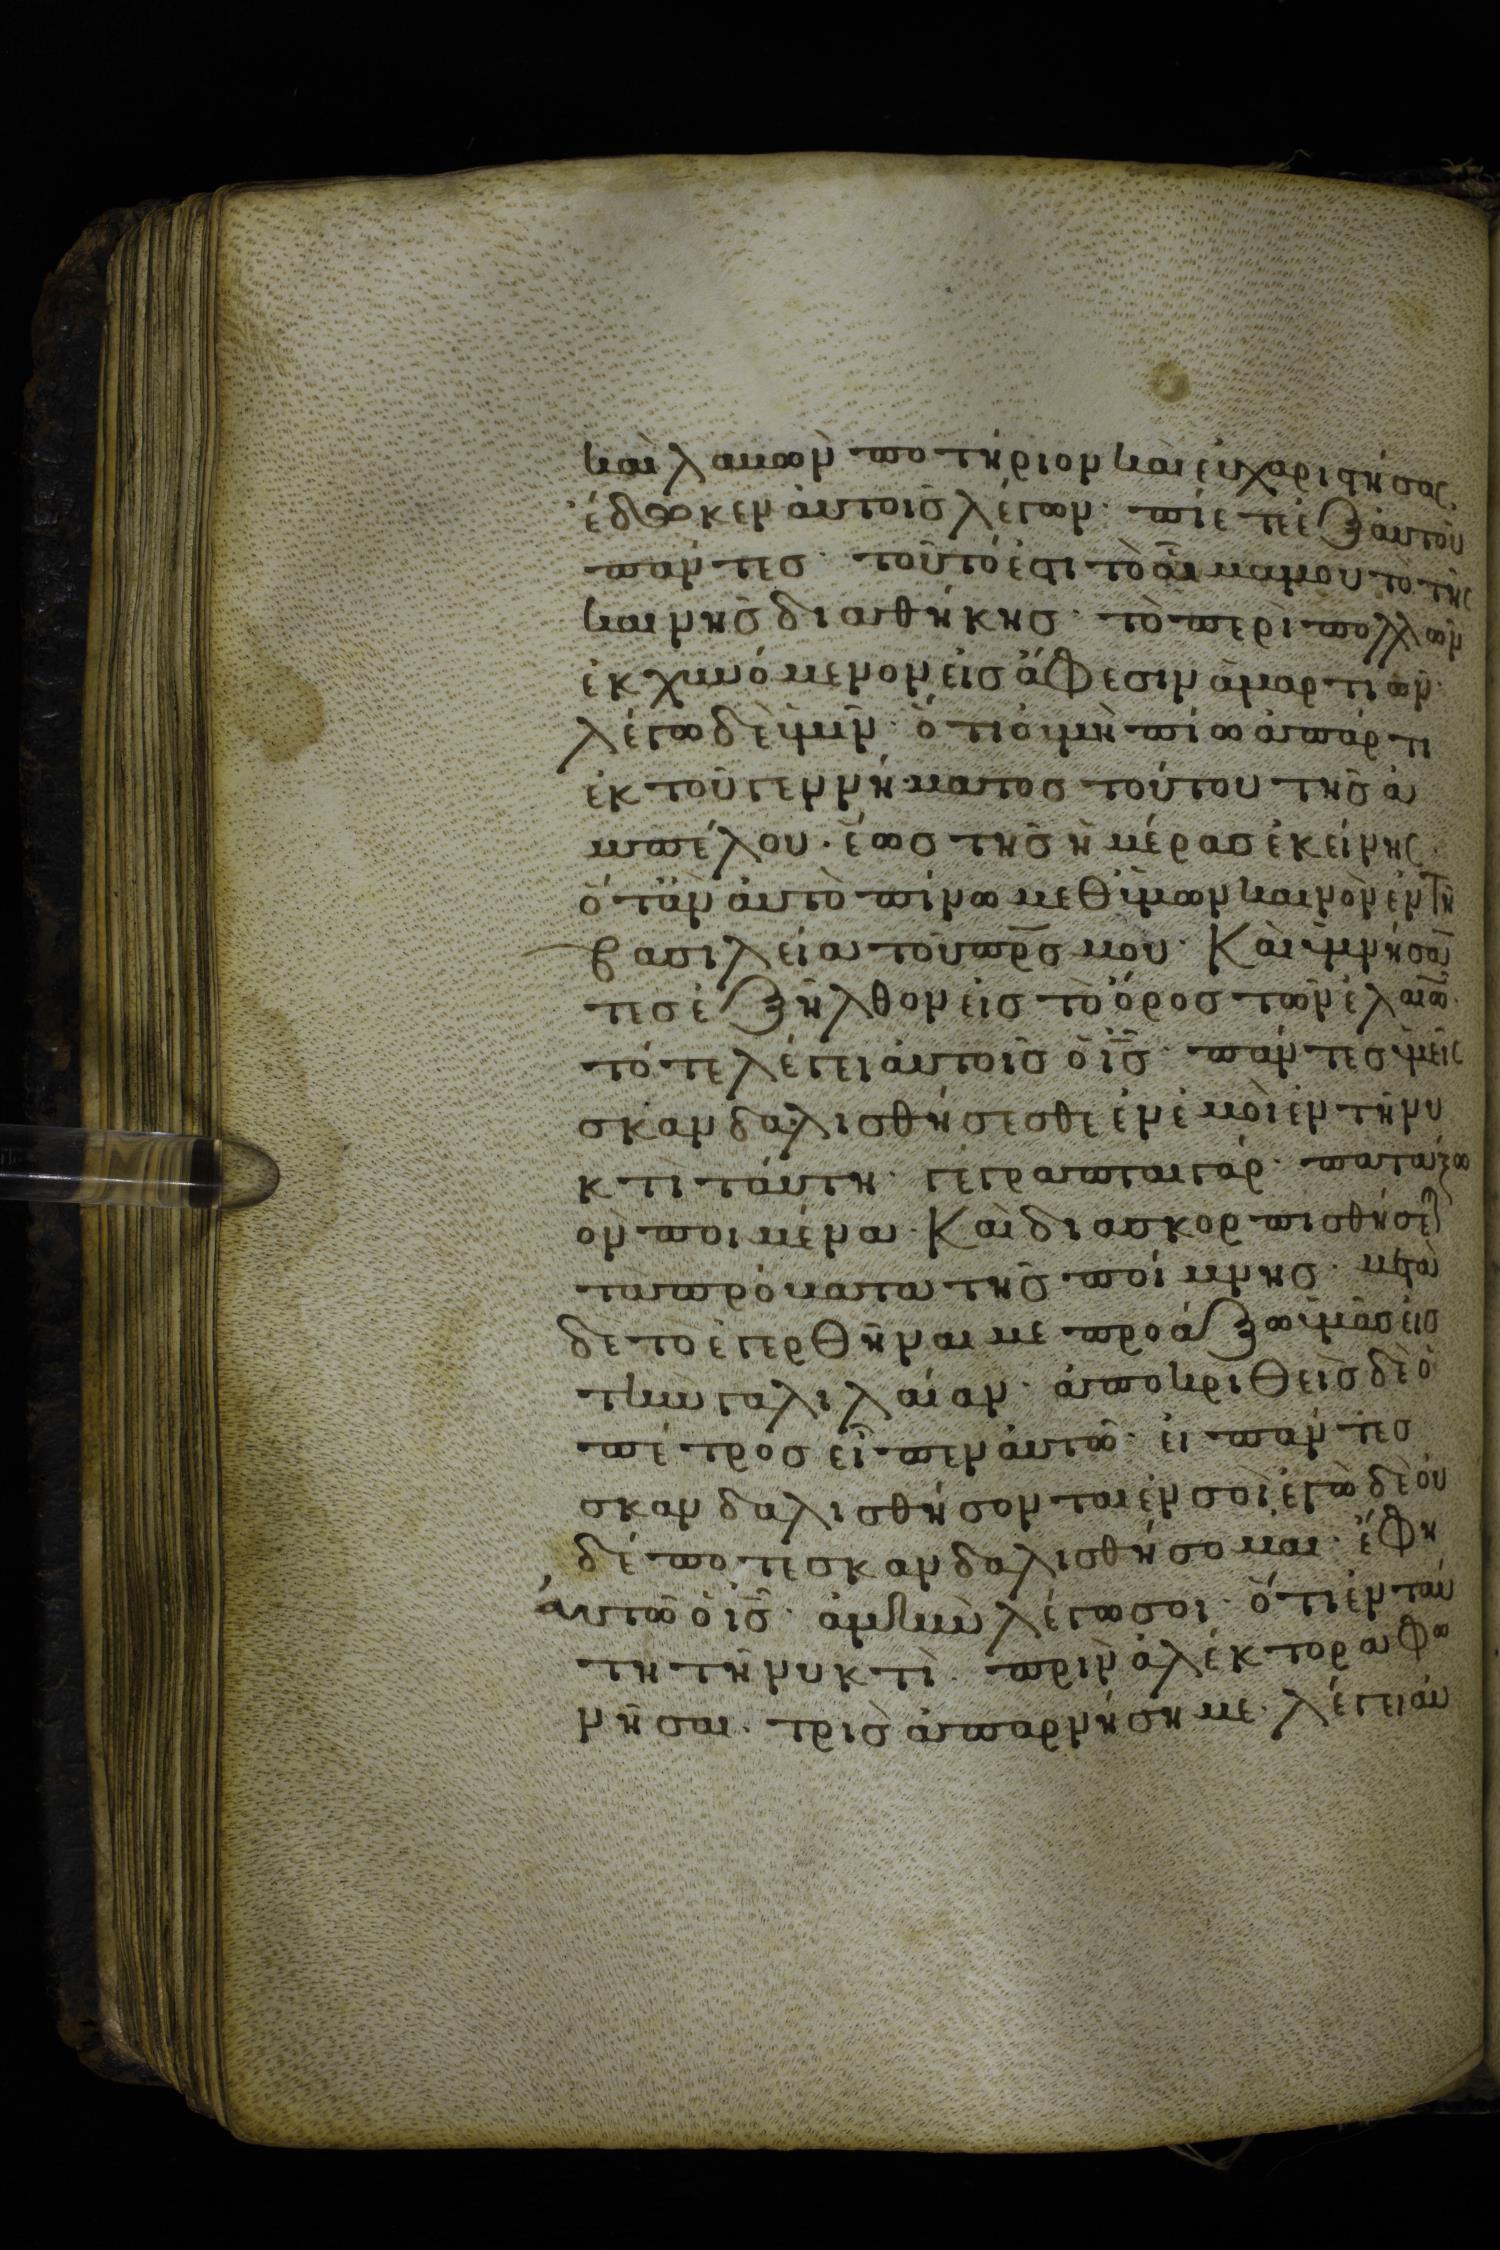 καὶ λαβὼν ποτήριον καὶ εὐχαριστήσας
ἔδωκεν αὐτοῖς λέγων· πίετε ἐξ αὐτοῦ
πάντες· τοῦτό ἐστι τὸ αἷμα μου τὸ τῆς
καινῆς διαθήκης· τὸ περὶ πολλῶν
ἐκχυνόμενον εἰς ἄφεσιν ἁμαρτιῶν·
λέγω δὲ ὑμῖν· ὅτι οὐ μὴ πίω ἀπάρτι
ἐκ τοῦ γεννήματος τούτου τῆς ἀ
μπέλου· ἕως τῆς ἡμέρας ἐκείνης·
ὅταν αὐτὸ πίνω μεθ' ὑμῶν καινὸν ἐν τῇ
βασιλεία τοῦ πρ̅ς μου· Καὶ ὑμνήσαν
τες ἐξῆλθον εἰς τὸ ὄρος τῶν ἐλαιῶ·
τότε λέγει αὐτοῖς ὁ ι̅ς· πάντες ὑμεῖς
σκανδαλισθήσεσθε ἐν ἐμοὶ ἐν τῇ νυ
κτὶ ταύτη· γέγραπται γάρ· πατάξω
τὸν ποιμένα· Καὶ διασκορπισθήσετ
τὰ πρόβατα τῆς ποίμνης· μετὰ
δὲ τὸ ἐγερθῆναι με προάξω ὑμᾶς εἰς
τὴν γαλιλαίαν· ἀποκριθεὶς δὲ ὁ
πέτρος εἶπεν αὐτῶ· εἰ πάντες
σκανδαλισθήσονται ἐν σοὶ ἐγὼ δὲ οὐ
δέποτε σκανδαλισθήσομαι· ἔφη
αὐτῶ ὁ ι̅ς· ἀμὴν λέγω σοι· ὅτι ἐν ταύ
τη τῆ νυκτὶ· πρὶν ἀλέκτορα φω
νῆσαι· τρὶς ἀπαρνήση με· λέγει αὐ